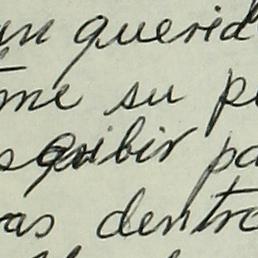 un querid
me su p
squibir pa
as dentro